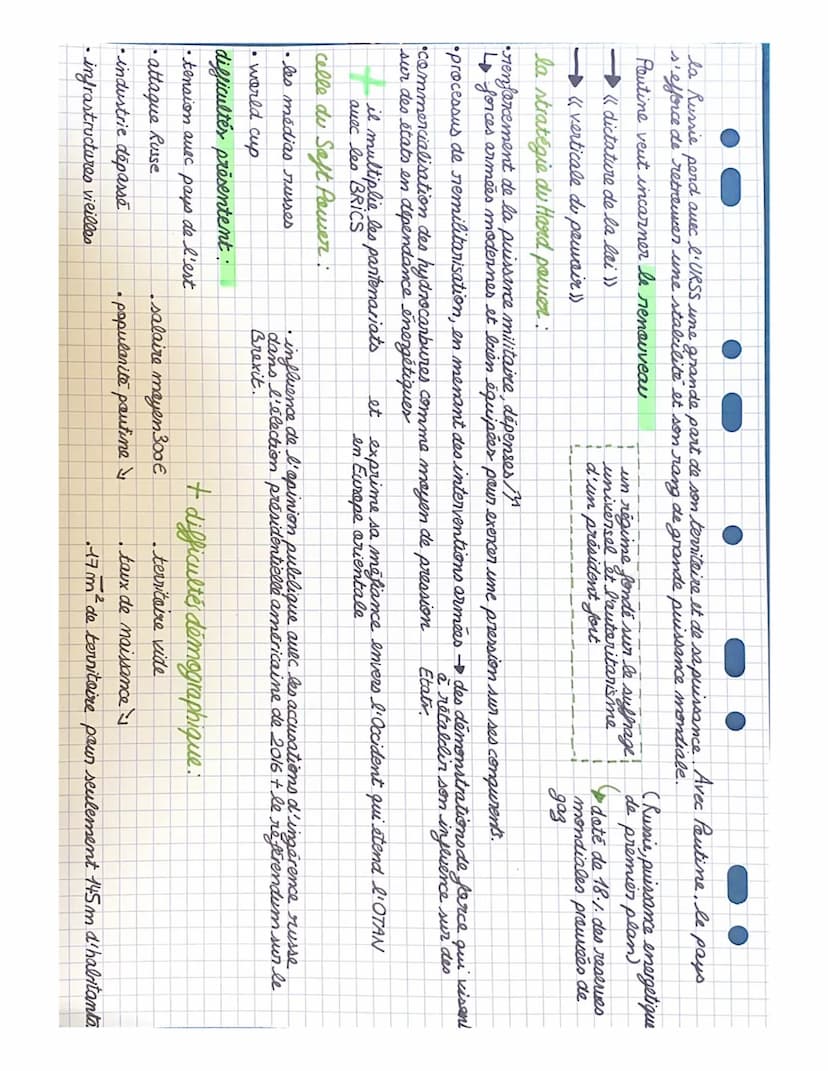 la Russie perd avec l'URSS une grande part de son territoire et de sa puissance. Avec Poutine, le pays
s'efforce de retrouver une stabilité et son rang de grande puissance mondiale.
Poutine veut incarner le renouveau
→ « dictature de la loi »
→ « verticale du pouvoir »
un régime fondé sur le suffrage
universel et l'autaritarisme
d'un président fort
(Russie, puissance energétique
de premier plan)
↳ doté de 18% des reserves
mondiales prouvées de
gaz
la stratégie du Hard power :
• renforcement de la puissance militaire, dépenses ↗
↳ forces armées modernes et bien équipées pour exercer une pression sur ses concurrents.
• processus de remilitarisation, en menant des interventions armées → des démonstrations de force qui visent
à rétablir son influence sur des
Etats.
• commercialisation des hydrocarbures comme moyen de pression
sur des états en dépendance énergétiques
+ il multiplie les partenariats et exprime sa méfiance envers l'Occident qui étend l'OTAN
avec les BRICS en Europe orientale
celle du Soft Power :
• les médias russes
• world cup
• influence de l'opinion publique avec les accusations d'ingérence russe
dans l'élection présidentielle américaine de 2016 + le référendum sur le
Brexit.
difficultés présentent :
• tension avec pays de l'est
• attaque Russe
• industrie dépassé
• infrastructures vieilles
• salaire moyen 300€
• popularité poutine ↘
+ difficultés démographique :
• territoire vide
• taux de naissance ↘
• 17 m² de territoire pour seulement 145 m d'habitants